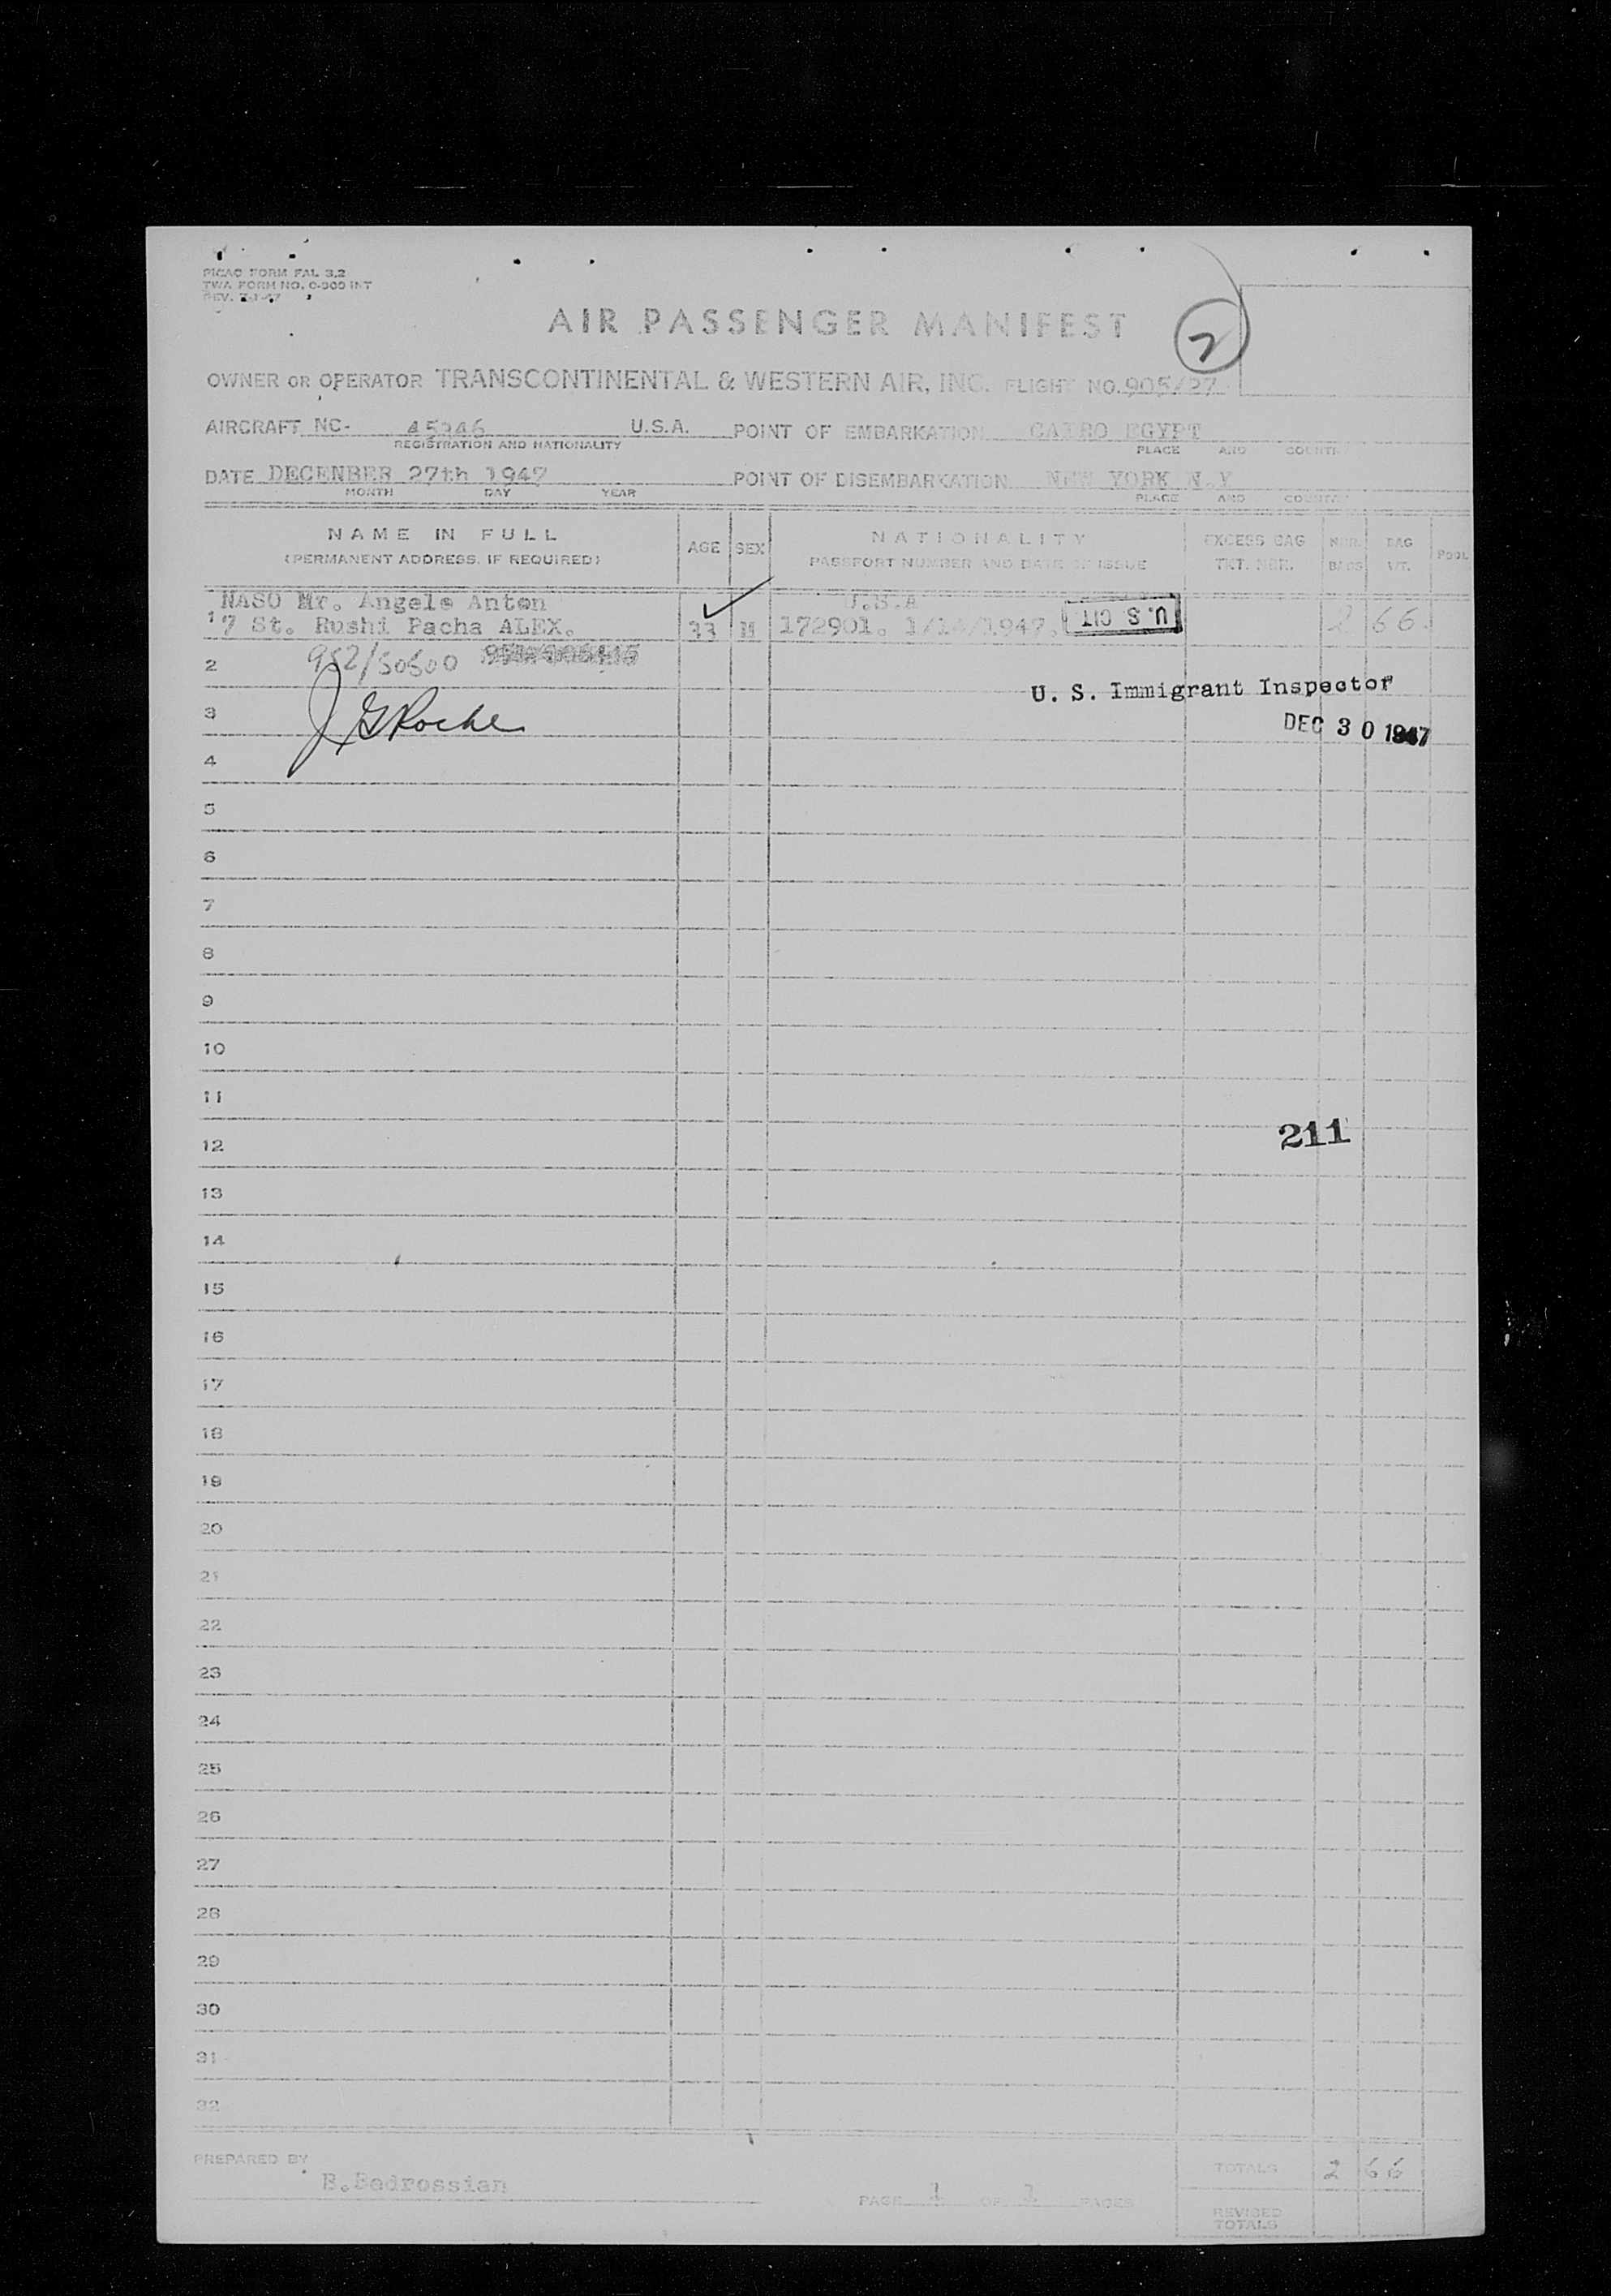 PICAO FORM FAL 3.2
TWA FORM NO. O-300 INT
REV. 7-1-47
AIR PASSENGER MANIFEST
2
OWNER OR OPERATOR TRANSCONTINENTAL & WESTERN AIR, INC. FLIGHT NO. 905/27
AIRCRAFT NC- U.S.A. POINT OF EMBARKATION CAIRO EGYPT
REGISTRATION AND NATIONALITY PLACE AND COUNTRY
DATE DECENBER 27th 1947 POINT OF DISEMBARKATION NEW YORK N.Y
MONTH DAY YEAR PLACE AND COUNTRY
NAME IN FULL AGE SEX NATIONALITY EXCESS BAG NBR. BAG POOL
(PERMANENT ADDRESS, IF REQUIRED) PASSPORT NUMBER AND DATE OF ISSUE TKT. NBR. BAGS WT.
NASO Mr. Angelo Anton U.S.A
1 7 St. Rushi Pacha ALEX. M 172901. 1947. U.S CIT 2 66.
2 952/50500
U. S. Immigrant Inspector
3 J G Roche DEC 30 1947
4
5
6
7
8
9
10
11
211
12
13
14
15
16
17
18
19
20
21
22
23
24
25
26
27
28
29
30
31
32
PREPARED BY B.Bedrossian
TOTALS 2 66
PAGE 1 OF 1 PAGES
REVISED
TOTALS